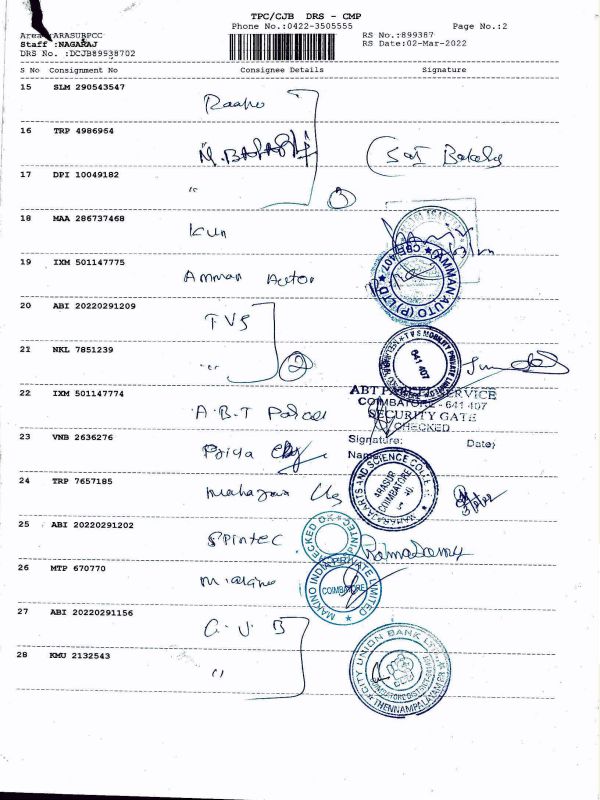 TPC/CJB DRS - CMP
Phone No.:0422-3505555 Page No.:2
Area :ARASURPCC RS No.:899387
Staff :NAGARAJ RS Date:02-Mar-2022
DRS No. :DCJB89938702
S No Consignment No Consignee Details Signature
15 SLM 290543547
16 TRP 4986964
17 DPI 10049182 "
18 MAA 286737468
19 IXM 501147775 Amman Auto
AMMAN AUTO (P) LTD ★ CBE-407 ★
20 ABI 20220291209 TVS
21 NKL 7851239 " 2
TVS MOBILITY PRIVATE LIMITED
641 407
22 IXM 501147774 A.B.T Parcel
ABT PARCEL SERVICE
COIMBATORE - 641 407
SECURITY GATE
CHECKED
Signature: Date:
Name:
23 VNB 2636276 Priya
24 TRP 7657185
ARTS AND SCIENCE COLLEGE
ARASUR
COIMBATORE
25 ABI 20220291202 Sprintec
Ramasamy
26 MTP 670770 Makino
MAKINO INDIA PRIVATE LIMITED
COIMBATORE
27 ABI 20220291156 C.U.B
28 KMU 2132543 "
CITY UNION BANK LTD.
THENNAMPALAYAM